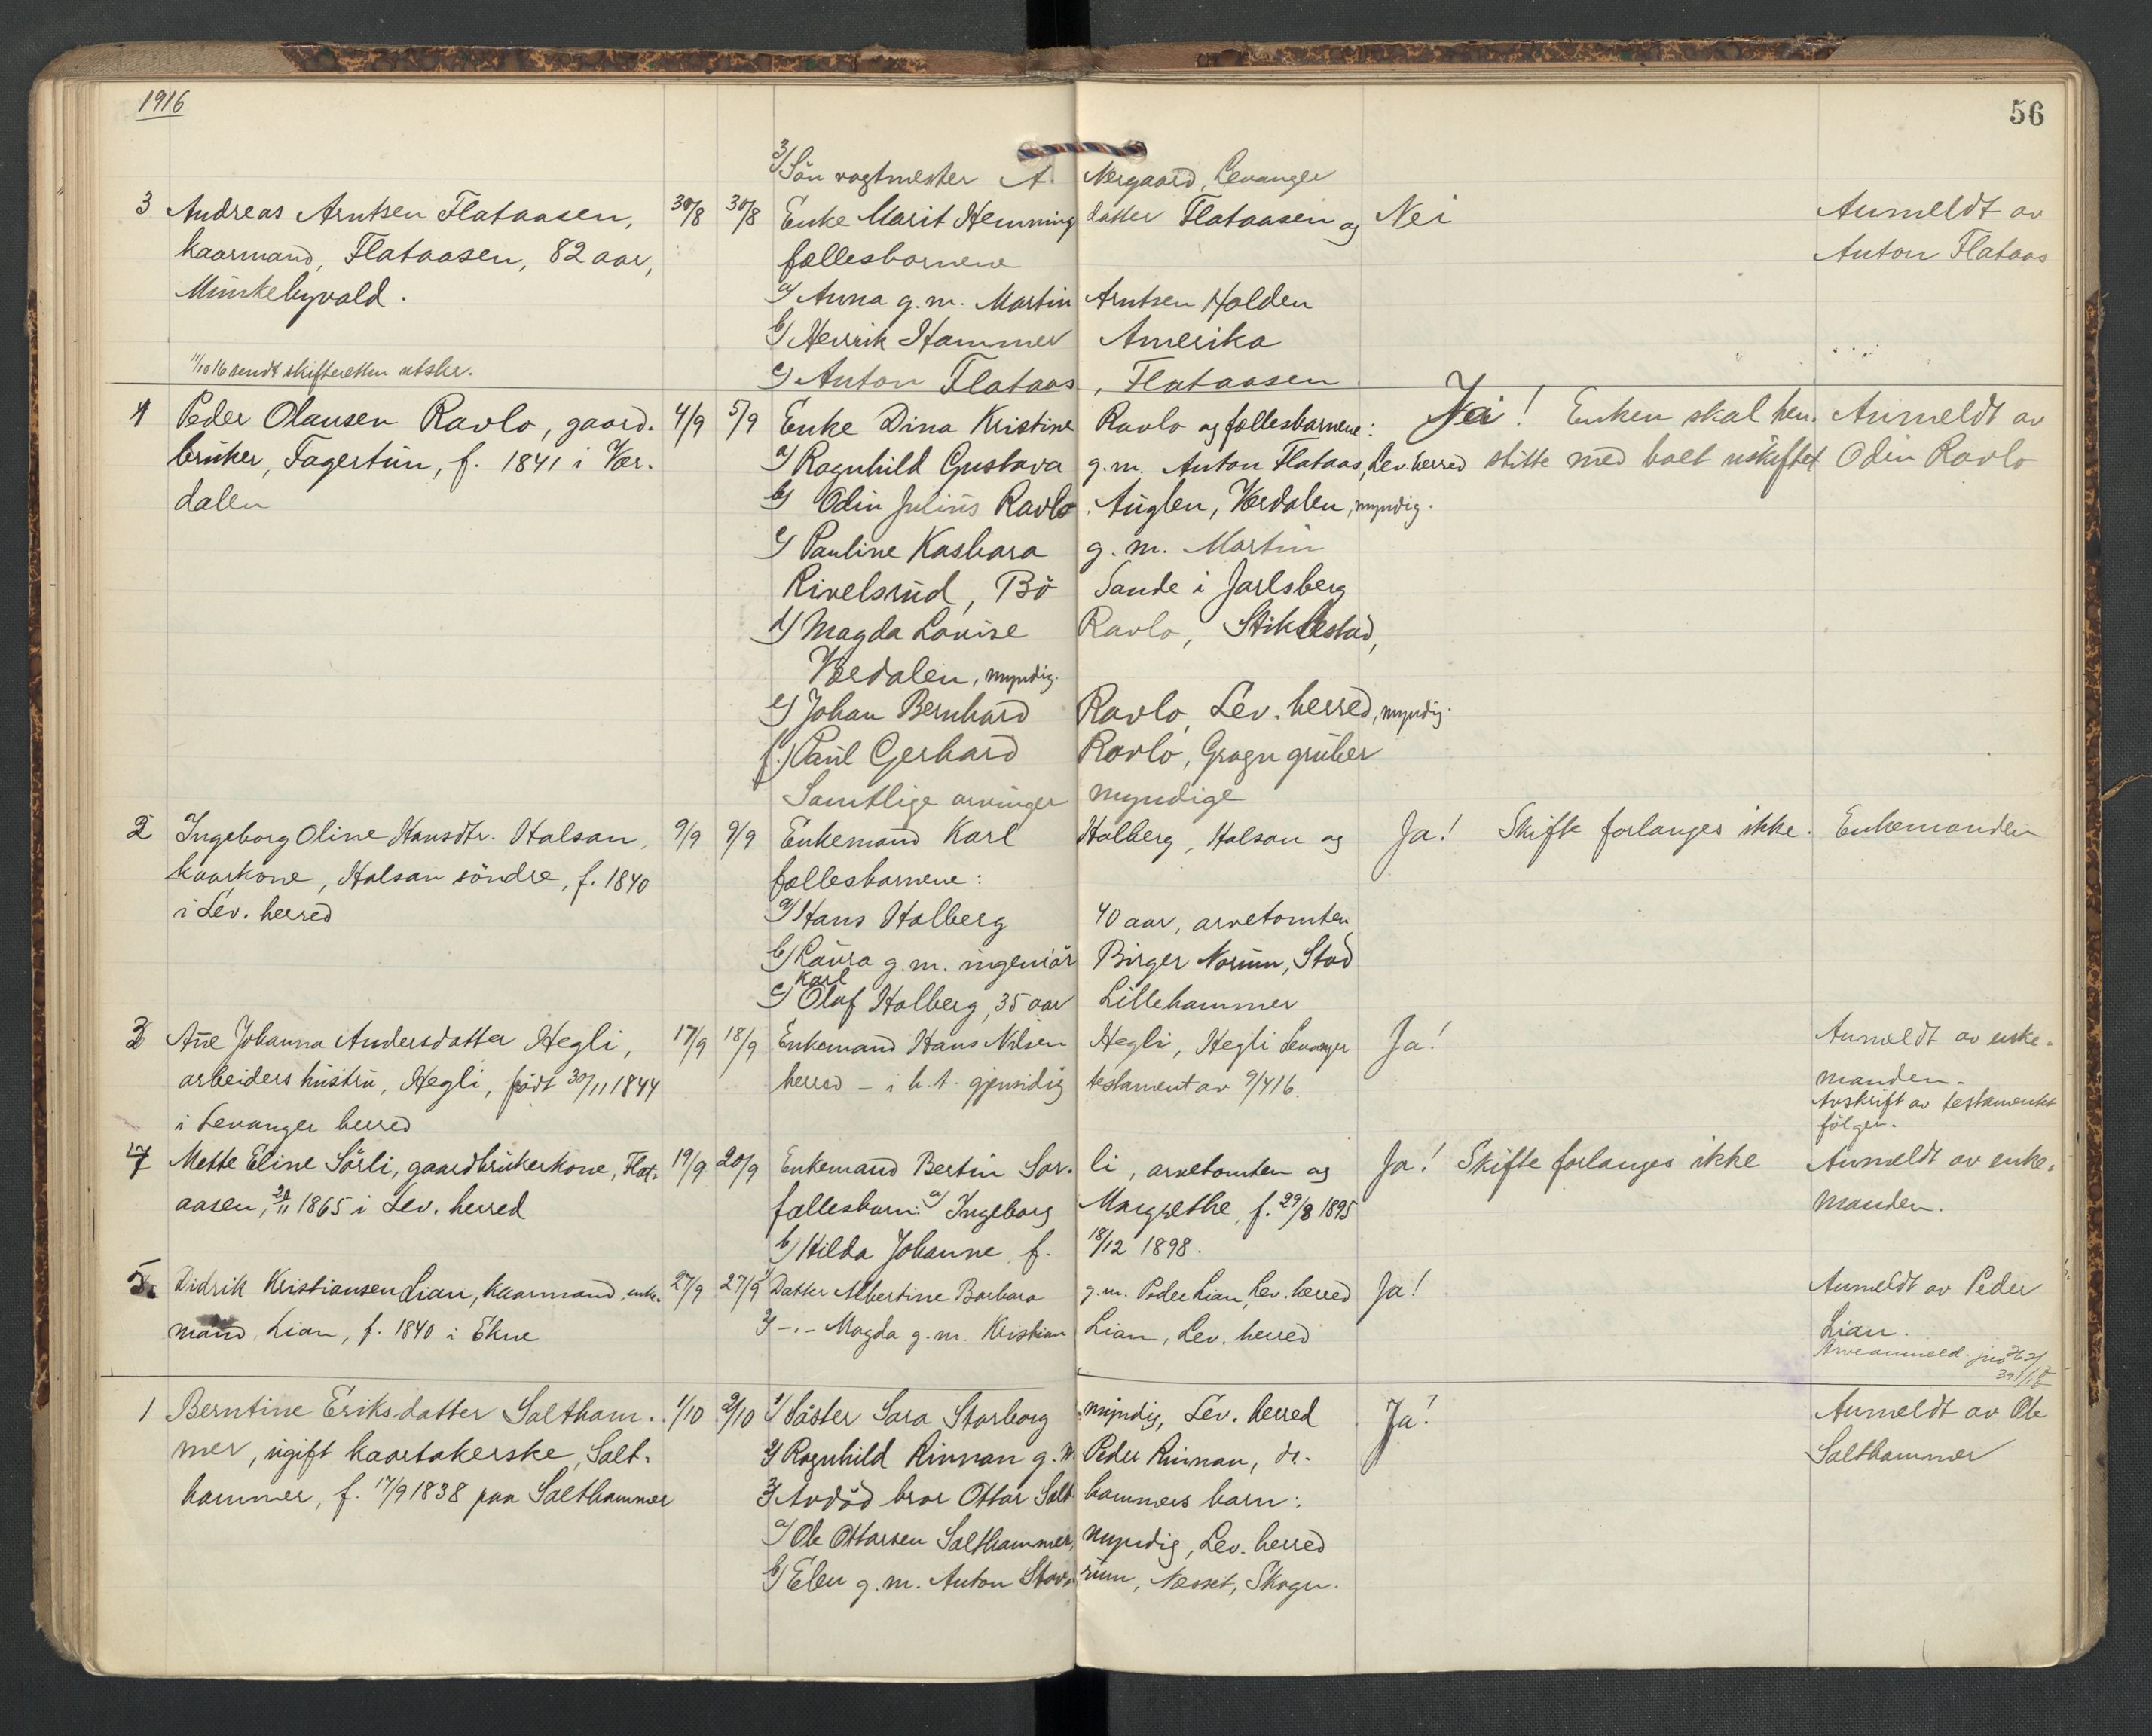 1916
56
3/ Sön vogtmester A. Nergaard, Levanger
3 Andreas Arntsen Flataasen, 30/8 30/8 Enke Marit Hemmingdatter Flataasen og Nei Anmeldt av
kaarmand, Flataasen, 82 aar, fællesbarnene Anton Flataas
Munkebyvald. a/ Anna g.m. Martin Arntsen Holden
b/ Henrik Hammer Amerika
11/10 16 sendt skifteretten utskr. c/ Anton Flataas, Flataasen
1 Peder Olausen Ravlo, gaard- 4/9 5/9 Enke Dina Kristine Ravlo og fællesbarnene: Nei! Enken skal hen- Anmeldt av
bruker, Fagertun, f. 1841 i Vær- a/ Ragnhild Gustava g.m. Anton Flataas, Lev. herred sitte med boet uskiftet Odin Ravlo
dalen b/ Odin Julius Ravlo, Auglen, Værdalen, myndig.
c/ Pauline Kasbara g.m. Martin
Rivelsrud, Bö Sande i Jarlsberg
d/ Magda Louise Ravlo, Stiklestad,
Værdalen, myndig.
e/ Johan Bernhard Ravlo, Lev. herred, myndig.
f./ Paul Gerhard Ravlo, gruber
Samtlige arvinger myndige
2 Ingeborg Oline Hansdtr. Halsan, 9/9 9/9 Enkemand Karl Halberg, Halsan og Ja! Skifte forlanges ikke. Enkemanden
kaarkone, Halsan söndre, f. 1840 fællesbarnene:
i Lev. herred a/ Hans Halberg 40 aar, arvetomten
b/ Laura g.m. ingeniör Birger Norum, Stod
Karl
c/ Olaf Halberg, 35 aar Lillehammer
3 Ane Johanna Andersdatter Hegli, 17/9 18/9 Enkemand Hans Nilsen Hegli, Hegli Levanger Ja! Anmeldt av enke-
arbeiders hustru, Hegli, födt 30/11 1844 herred - i h.t. gjensidig testament av 9/4 16. manden.
i Levanger herred Avskrift av testamentet
følger.
4 Mette Eline Sörli, gaardbrukerkone, Flat- 19/9 20/9 Enkemand Bertin Sörli, arvetomten og Ja! Skifte forlanges ikke Anmeldt av enke-
aasen, 20/11 1865 i Lev. herred fællesbarn: a/ Ingeborg Margrethe, f. 29/8 1895 manden.
b/ Hilda Johanne, f. 18/12 1898.
5. Didrik Kristiansen Lian, kaarmand, enke- 27/9 27/9 1/ Datter Albertine Barbara g.m. Peder Lian, Lev. herred Ja! Anmeldt av Peder
mand, Lian, f. 1840 i Ekne 2/ -,- Magda g.m. Kristian Lian, Lev. herred Lian.
Arveanmeld.
1 Berntine Eriksdatter Saltham- 1/10 2/10 1/ Söster Sara Storborg myndig, Lev. herred Ja! Anmeldt av Ole
mer, ugift kaartakerske, Salt- 2/ Ragnhild Rinnan g.m. Peder Rinnan, do. Salthammer
hammer, f. 17/9 1838 paa Salthammer 3/ Avdöd bror Ottar Salthammers barn:
a/ Ole Ottarsen Salthammer, myndig, Lev. herred
b/ Elen g.m. Anton Stavrum, Næsset, Skogn.